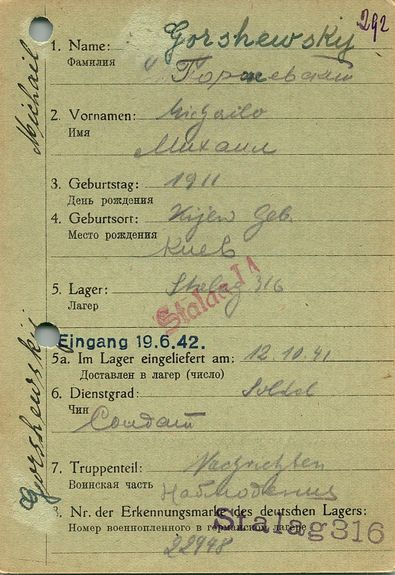 292
1. Name: Gorshewsky
Фамилия Горжевский
2. Vornamen: Michailo
Имя
Михаил
3. Geburtstag: 1911
День рождения
4. Geburtsort: Kijew Geb.
Место рождения
Киев
5. Lager: Stalag 316
Лагер
Stalag I A
Eingang 19.6.42.
5a. Im Lager eingeliefert am: 12.10.41
Доставлен в лагер (число)
6. Dienstgrad: Soldat
Чин
Солдат
7. Truppenteil: Nachrichten
Воинская часть
Наблюдения
8. Nr. der Erkennungsmarke des deutschen Lagers:
Номер военнопленного в германском лагере
Stalag 316
22948
Michail
Gorshewsky